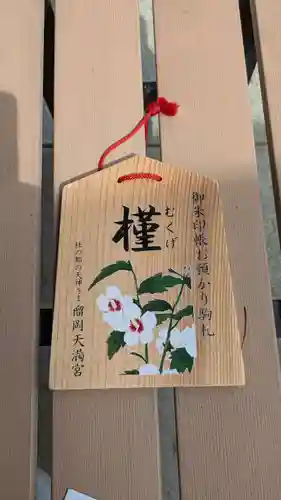 御朱印帳お預かり駒札
むくげ
槿
杜の都の天神さま
榴岡天満宮